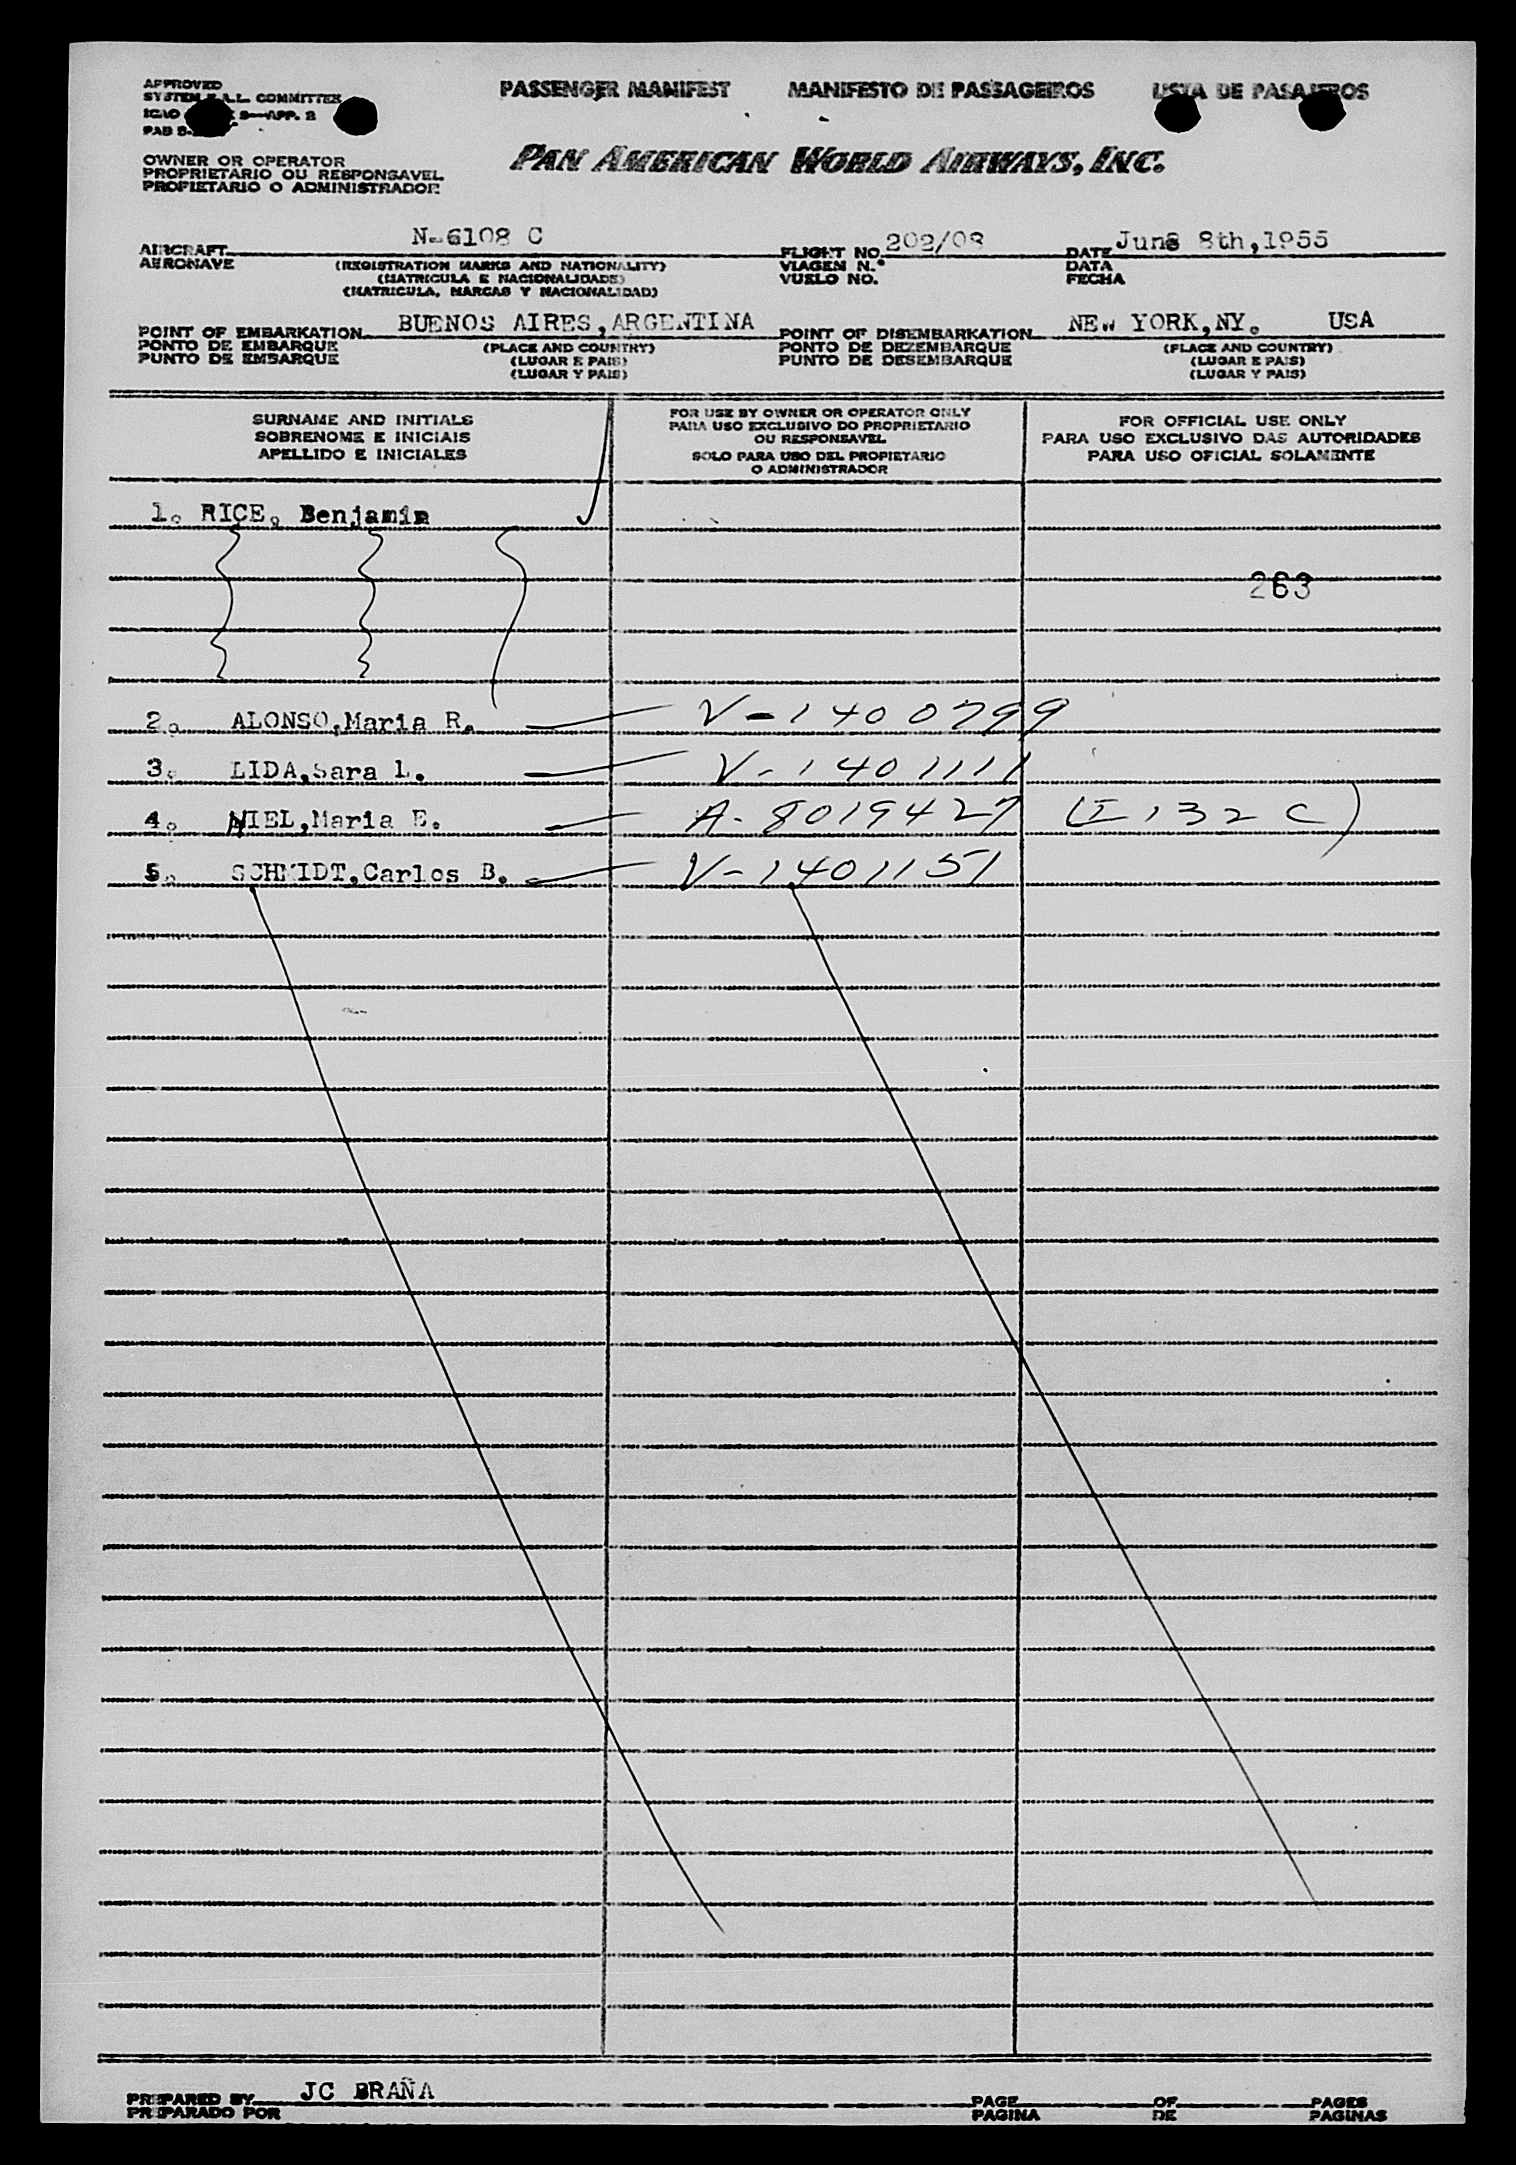 APPROVED
SYSTEM COMMITTEE
PASSENGER MANIFEST MANIFESTO DE PASSAGEIROS LISTA DE PASAJEROS
APP. 2
PAN AMERICAN WORLD AIRWAYS, INC.
OWNER OR OPERATOR
PROPRIETARIO OU RESPONSAVEL
PROPIETARIO O ADMINISTRADOR
AIRCRAFT N-6108 C FLIGHT NO. 202/08 DATE June 8th,1955
AERONAVE (REGISTRATION MARKS AND NATIONALITY) VIAGEM N.° DATA
(MATRICULA E NACIONALIDADE) VUELO NO. FECHA
(MATRICULA, MARCAS Y NACIONALIDAD)
POINT OF EMBARKATION BUENOS AIRES,ARGENTINA POINT OF DISEMBARKATION NEW YORK,NY. USA
PONTO DE EMBARQUE (PLACE AND COUNTRY) PONTO DE DEZEMBARQUE (PLACE AND COUNTRY)
PUNTO DE EMBARQUE (LUGAR E PAIS) PUNTO DE DESEMBARQUE (LUGAR E PAIS)
(LUGAR Y PAIS) (LUGAR Y PAIS)
SURNAME AND INITIALS
SOBRENOME E INICIAIS
APELLIDO E INICIALES
FOR USE BY OWNER OR OPERATOR ONLY
PARA USO EXCLUSIVO DO PROPRIETARIO
OU RESPONSAVEL
SOLO PARA USO DEL PROPIETARIO
O ADMINISTRADOR
FOR OFFICIAL USE ONLY
PARA USO EXCLUSIVO DAS AUTORIDADES
PARA USO OFICIAL SOLAMENTE
1. RICE, Benjamin
263
2. ALONSO,Maria R. V-1400799
3. LIDA,Sara L. V-1401111
4. NIEL,Maria E. A-8019427 (I 132 C)
5. SCHMIDT,Carlos B. V-1401151
PREPARED BY JC BRAÑA PAGE OF PAGES
PREPARADO POR PAGINA DE PAGINAS